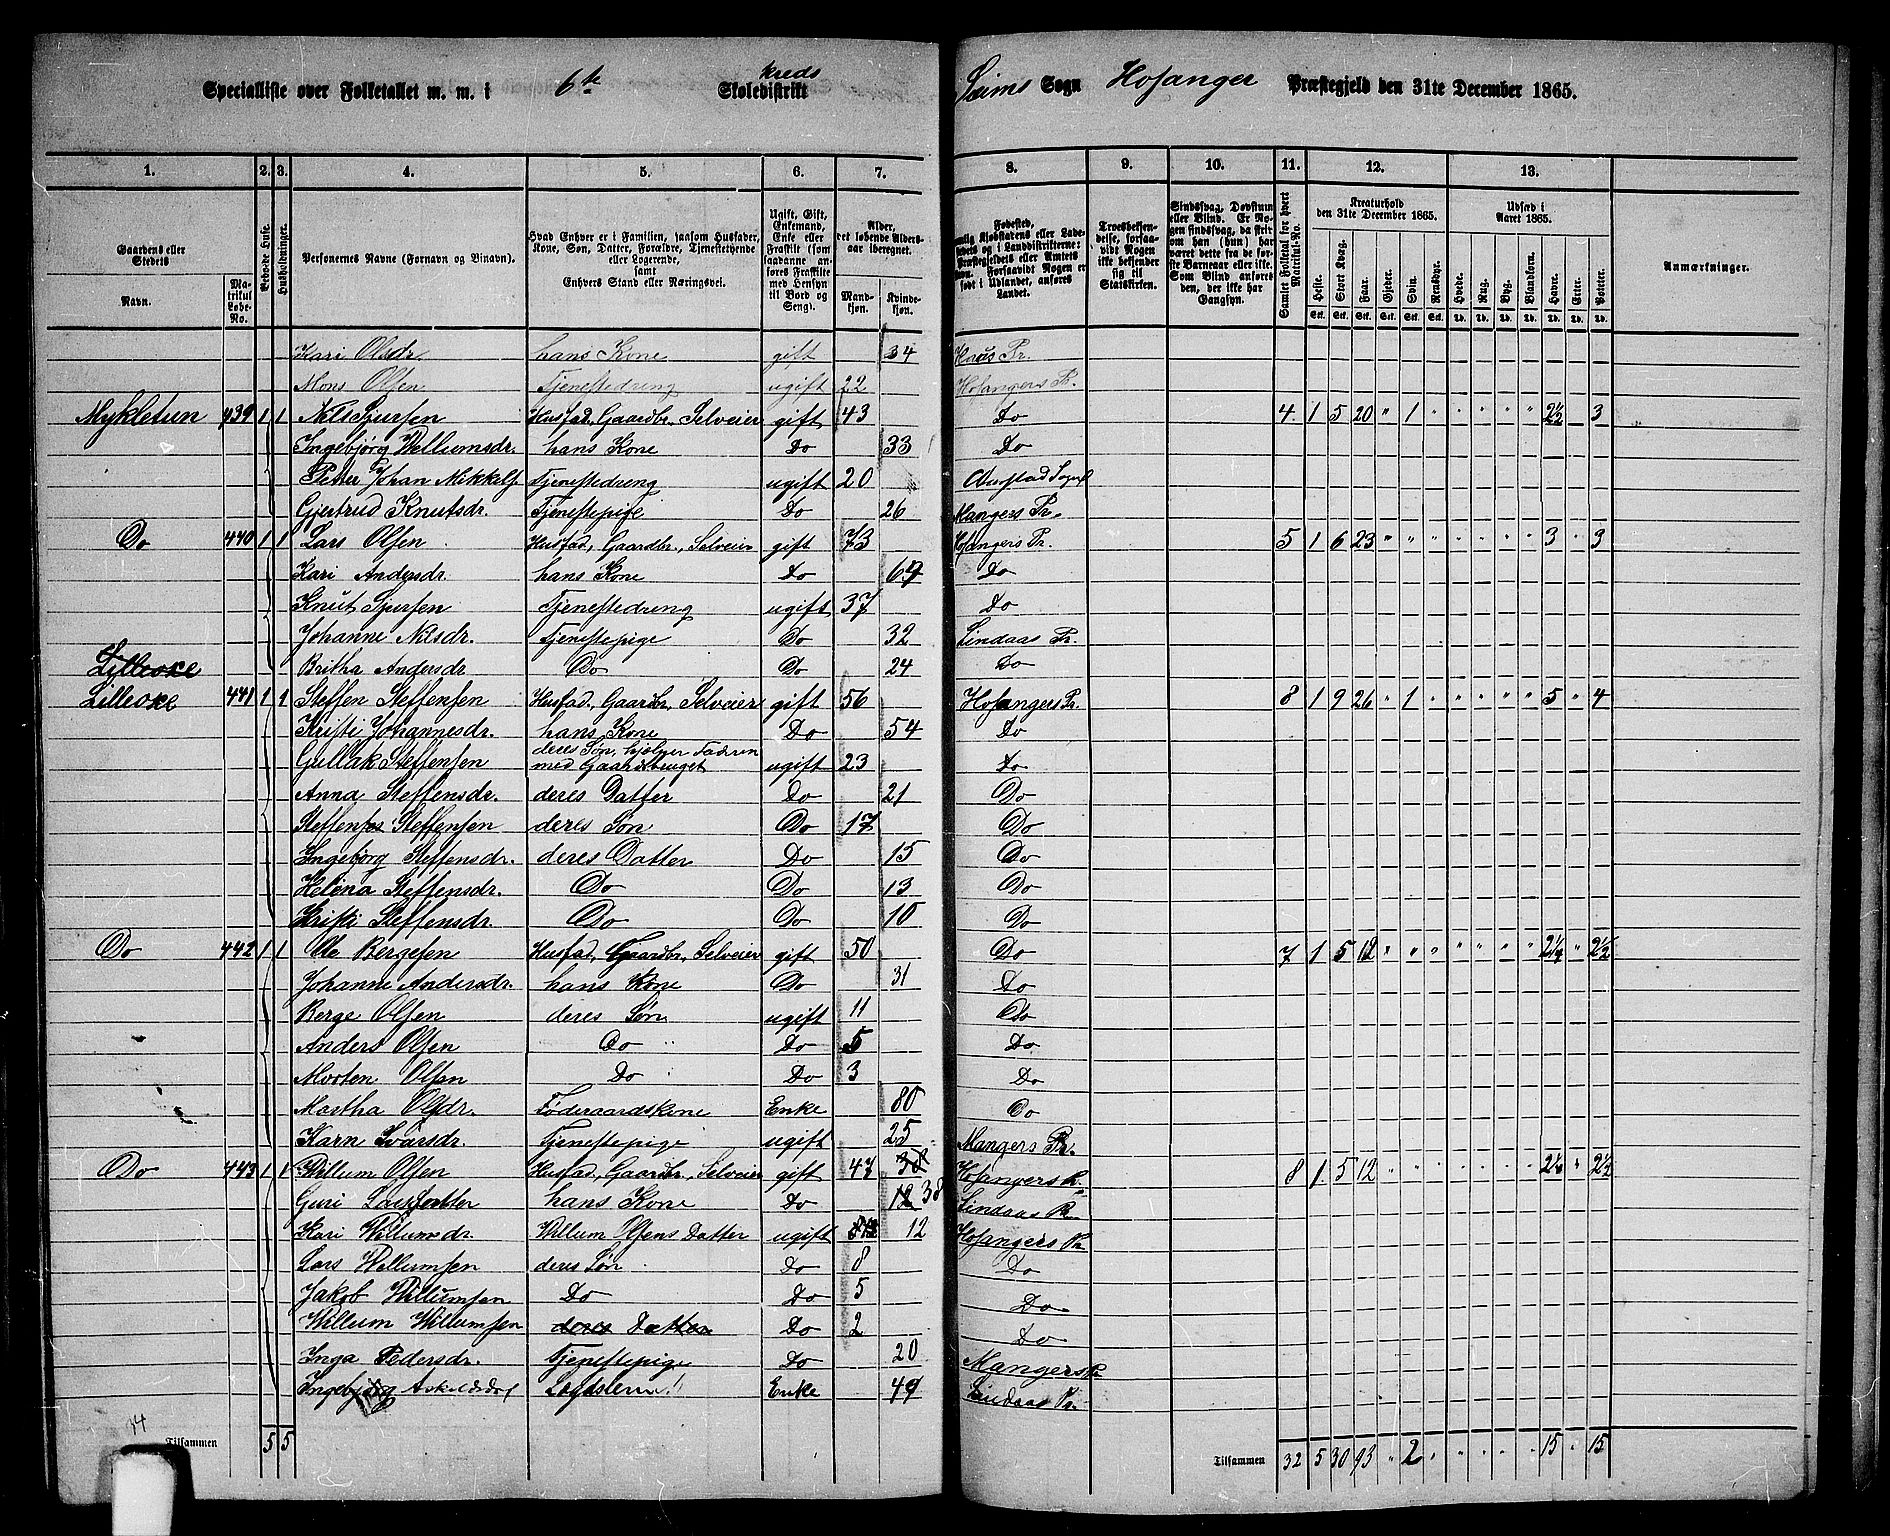 Specialliste over Folketallet m. m. i 6te Skoledistrikt kreds Seims Sogn Hosanger Præstegjeld den 31te December 1865.
1. 2. 3. 4. 5. 6. 7. 8. 9. 10. 11. 12. 13.
Gaardens eller Stedets Navn. Matrikul Løbe-No. Beboede Huse. Husholdninger. Personernes Navne (Fornavn og Binavn). Hvad Enhver er i Familien, saasom Husfader, Kone, Søn, Datter, Forældre, Tjenestetyende eller Logerende, samt Enhvers Stand eller Næringsvei. Ugift, Gift, Enkemand, Enke eller Fraskilt (som saadanne anføres Fraskilte med Hensyn til Bord og Seng). Alder, det løbende Aldersaar iberegnet. Mandkjøn. Kvindekjøn.
Trosbekjendelse, forsaavidt Nogen ikke bekjender sig til Statskirken. Sindssvag, Døvstum eller Blind. Samlet Folketal for hvert Matrikul-No. Kreaturhold den 31te December 1865. Heste. Stort Kvæg. Faar. Gjeder. Sviin. Rensdyr. Udsæd i Aaret 1865. Hvede. Rug. Byg. Blandkorn. Havre. Erter. Poteter. Anmærkninger.
Kari Olsdr. hans Kone gift 34 Haus Pr.
Mons Olsen Tjenestedreng ugift 22 Hosangers Pr.
Mykletun 439 1 1 Nils Sjursen Husfad, Gaardbr, Selveier gift 43 Do 4. 1 5 20 " 1 " " " " " 2½ " 3
Ingebjørg Willumsdr. hans Kone Do 33 Do
Petter Johan Mikkels. Tjenestedreng ugift 20
Gjertrud Knutsdr. Tjenestepige Do 26 Mangers Pr.
Do 440 1 1 Lars Olsen Husfad, Gaardbr., Selveier gift 73 Hosangers Pr. 5 1 6 23 " " " " " " " 3 " 3
Kari Andersdr. hans Kone Do Do
Knut Sjursen Tjenestedreng ugift 37 Do
Johanne Nilsdr. Tjenestepige Do 32 Lindaas Pr.
Lilleoxe Britha Andersdr. Do Do 24 Do
Lilleoxe 441 1 1 Steffen Steffensen Husfad, Gaardbr, Selveier gift 56 Hosangers Pr. 8 1 9 26 " 1 " " " " " 5 " 4
Kristi Johannesdr. hans Kone Do 54 Do
Gullak Steffensen deres Søn, hjelper Faderen med Gaardsbruget ugift 23 Do
Anna Steffensdr. deres Datter Do 21 Do
Steffen Steffensen deres Søn Do 17 Do
Ingebjørg Steffensdr. deres Datter Do 15 Do
Helena Steffensdr. Do Do 13 Do
Kristi Steffensdr. Do Do 10 Do
Do 442 1 1 Ole Bergesen Husfad, Gaardbr., Selveier gift 50 Do 7 1 5 12 " " " " " " " 2½ " 2½
Johanne Andersdr. hans Kone Do 31 Do
Berge Olsen deres Søn ugift 11 Do
Anders Olsen Do Do 5 Do
Morten Olsen Do Do 3 Do
Martha Olsdr. Føderaadskone Enke 80 Do
Karn Ivarsdr. Tjenestepige ugift 25 Mangers Pr.
Do 443 1 1 Willum Olsen Husfad, Gaardbr, Selveier gift 47 38 Hosangers Pr. 8 1 5 12 " " " " " " " 2½ " 2½
Guri Larsdatter hans Kone Do 12 38 Lindaas Pr
Kari Willumsdr. Willum Olsens Datter ugift 12 Hosangers Pr
Lars Willumsen deres Søn Do 8 Do
Jakob Willumsen Do Do 5 Do
Willum Willumsen deres Datter Do 2 Do
Inga Pedersdr. Tjenestepige Do 20 Mangers Pr
Ingebjørg Askildsdr Lægdslem Enke 49 Lindaas Pr.
34
Tilsammen 5 5 Tilsammen 32 5 30 93 " 2 " " " " " 15 " 15